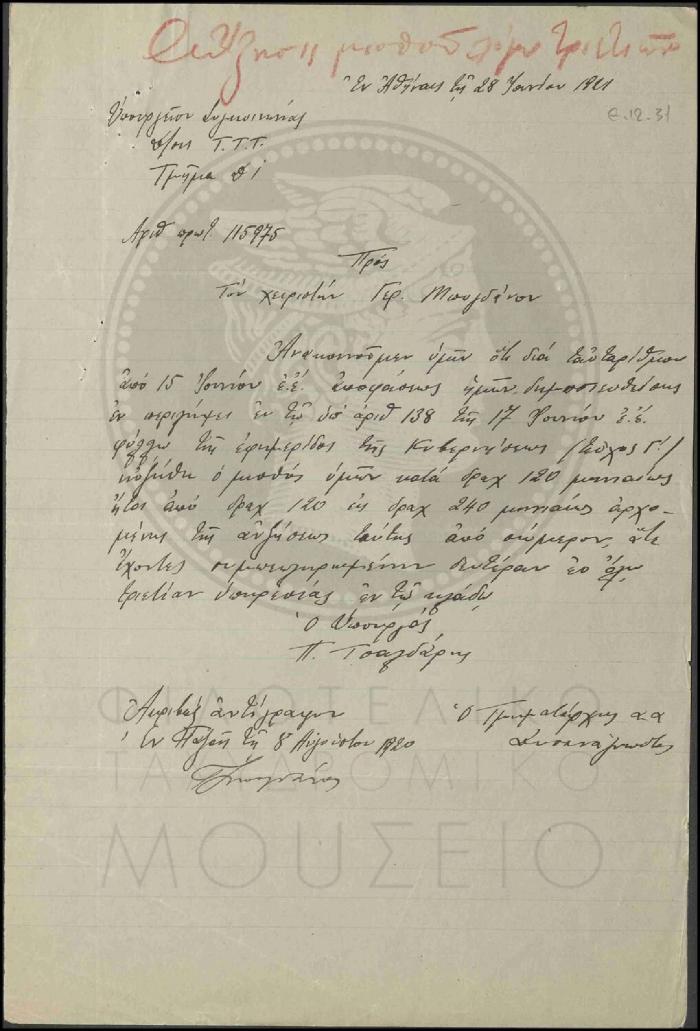 Αὔξησις μισθοῦ λόγω τριετιῶν
Ἐν Ἀθήναις τῇ 28 Ἰουνίου 1921
e.12.31
Ὑπουργεῖον Συγκοινωνίας
Δ/σις Τ.Τ.Τ.
Τμῆμα
Ἀριθ πρωτ. 115975
Πρὸς
Τὸν χειριστὴν Γερ. Μπογδάνον
Ἀνακοινοῦμεν ὑμῖν ὅτι διὰ ταυταρίθμου
ἀπὸ 15 Ἰουνίου ἐ.ἔ. ἀποφάσεως ἡμῶν, δημοσιευθείσης
ἐν περιλήψει ἐν τῷ ὑπ' ἀριθ 138 τῆς 17 Ἰουνίου ἐ.ἔ.
φύλλῳ τῆς ἐφημερίδος τῆς Κυβερνήσεως (τεῦχος Γ')
ηὐξήθη ὁ μισθὸς ὑμῶν κατὰ δραχ 120 μηνιαίως
ἤτοι ἀπὸ δραχ 120 εἰς δραχ 240 μηνιαίως ἀρχο-
μένης τῆς αὐξήσεως ταύτης ἀπὸ σήμερον, ἅτε
ἔχοντες συμπεπληρωμένην δευτέραν
τριετίαν ὑπηρεσίας ἐν τῷ κλάδῳ
Ὁ Ὑπουργὸς
Π. Τσαλδάρης
Ἀκριβὲς ἀντίγραφον
Ἐν τῇ 8 Αὐγούστου 1920
Ὁ Τμηματάρχης α.α
ΦΙΛΟΤΕΛΙΚΟ
ΤΑΧΥΔΡΟΜΙΚΟ
ΜΟΥΣΕΙΟ